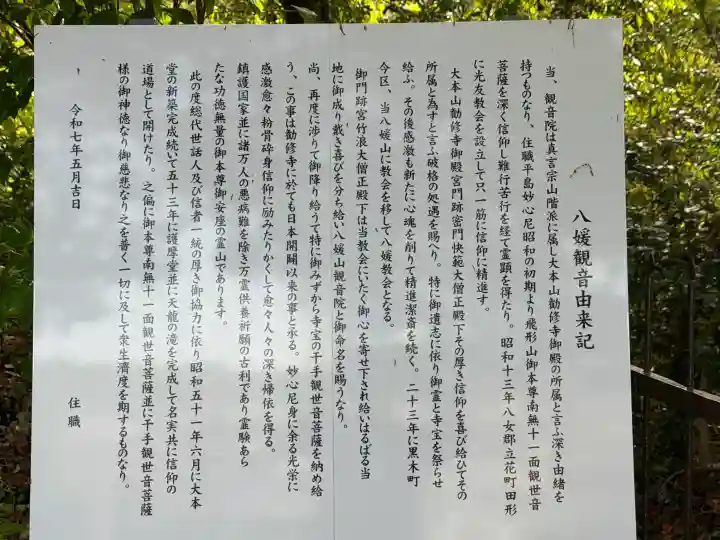 八媛観音由来記
当、観音院は真言宗山階派に属し大本山勧修寺御殿の所属と言ふ深き由緒を
持つものなり、住職平島妙心尼昭和の初期より飛形山御本尊南無十一面観世音
菩薩を深く信仰し難行苦行を経て霊顕を得たり。昭和十三年八女郡立花町田形
に光友教会を設立して只一筋に信仰に精進す。
大本山勧修寺御殿宮門跡密門快範大僧正殿下その厚き信仰を喜び給ひてその
所属と為すと言ふ破格の処遇を賜へり。特に御遺志に依り御霊と寺宝を祭らせ
給ふ。その後感激も新たに心魂を削りて精進潔斎を続く。二十三年に黒木町
今区、当八媛山に教会を移して八媛教会となる。
御門跡宮竹浪大僧正殿下は当教会にいたく御心を寄せ下され給いはるばる当
地に御成り戴き喜びを分ち給い八媛山観音院と御命名を賜うなり。
尚、再度に渉りて御降り給うて特に御みずから寺宝の千手観世音菩薩を納め給
う、この事は勧修寺に於ても日本開闢以来の事と承る。妙心尼身に余る光栄に
感激愈々粉骨砕身信仰に励みたりかくして愈々人々の深き帰依を得る。
鎮護国家並に諸万人の悪病難を除き万霊供養祈願の古刹であり霊験あら
たな功徳無量の御本尊御安座の霊山であります。
此の度総代世話人及び信者一統の厚き御協力に依り昭和五十一年六月に大本
堂の新築完成続いて五十三年に護摩堂並に天龍の滝を完成して名実共に信仰の
道場として開けたり。之偏に御本尊南無十一面観世音菩薩並に千手観世音菩薩
様の御神徳なり御慈悲なり之を普く一切に及して衆生済度を期するものなり。
令和七年五月吉日
住職